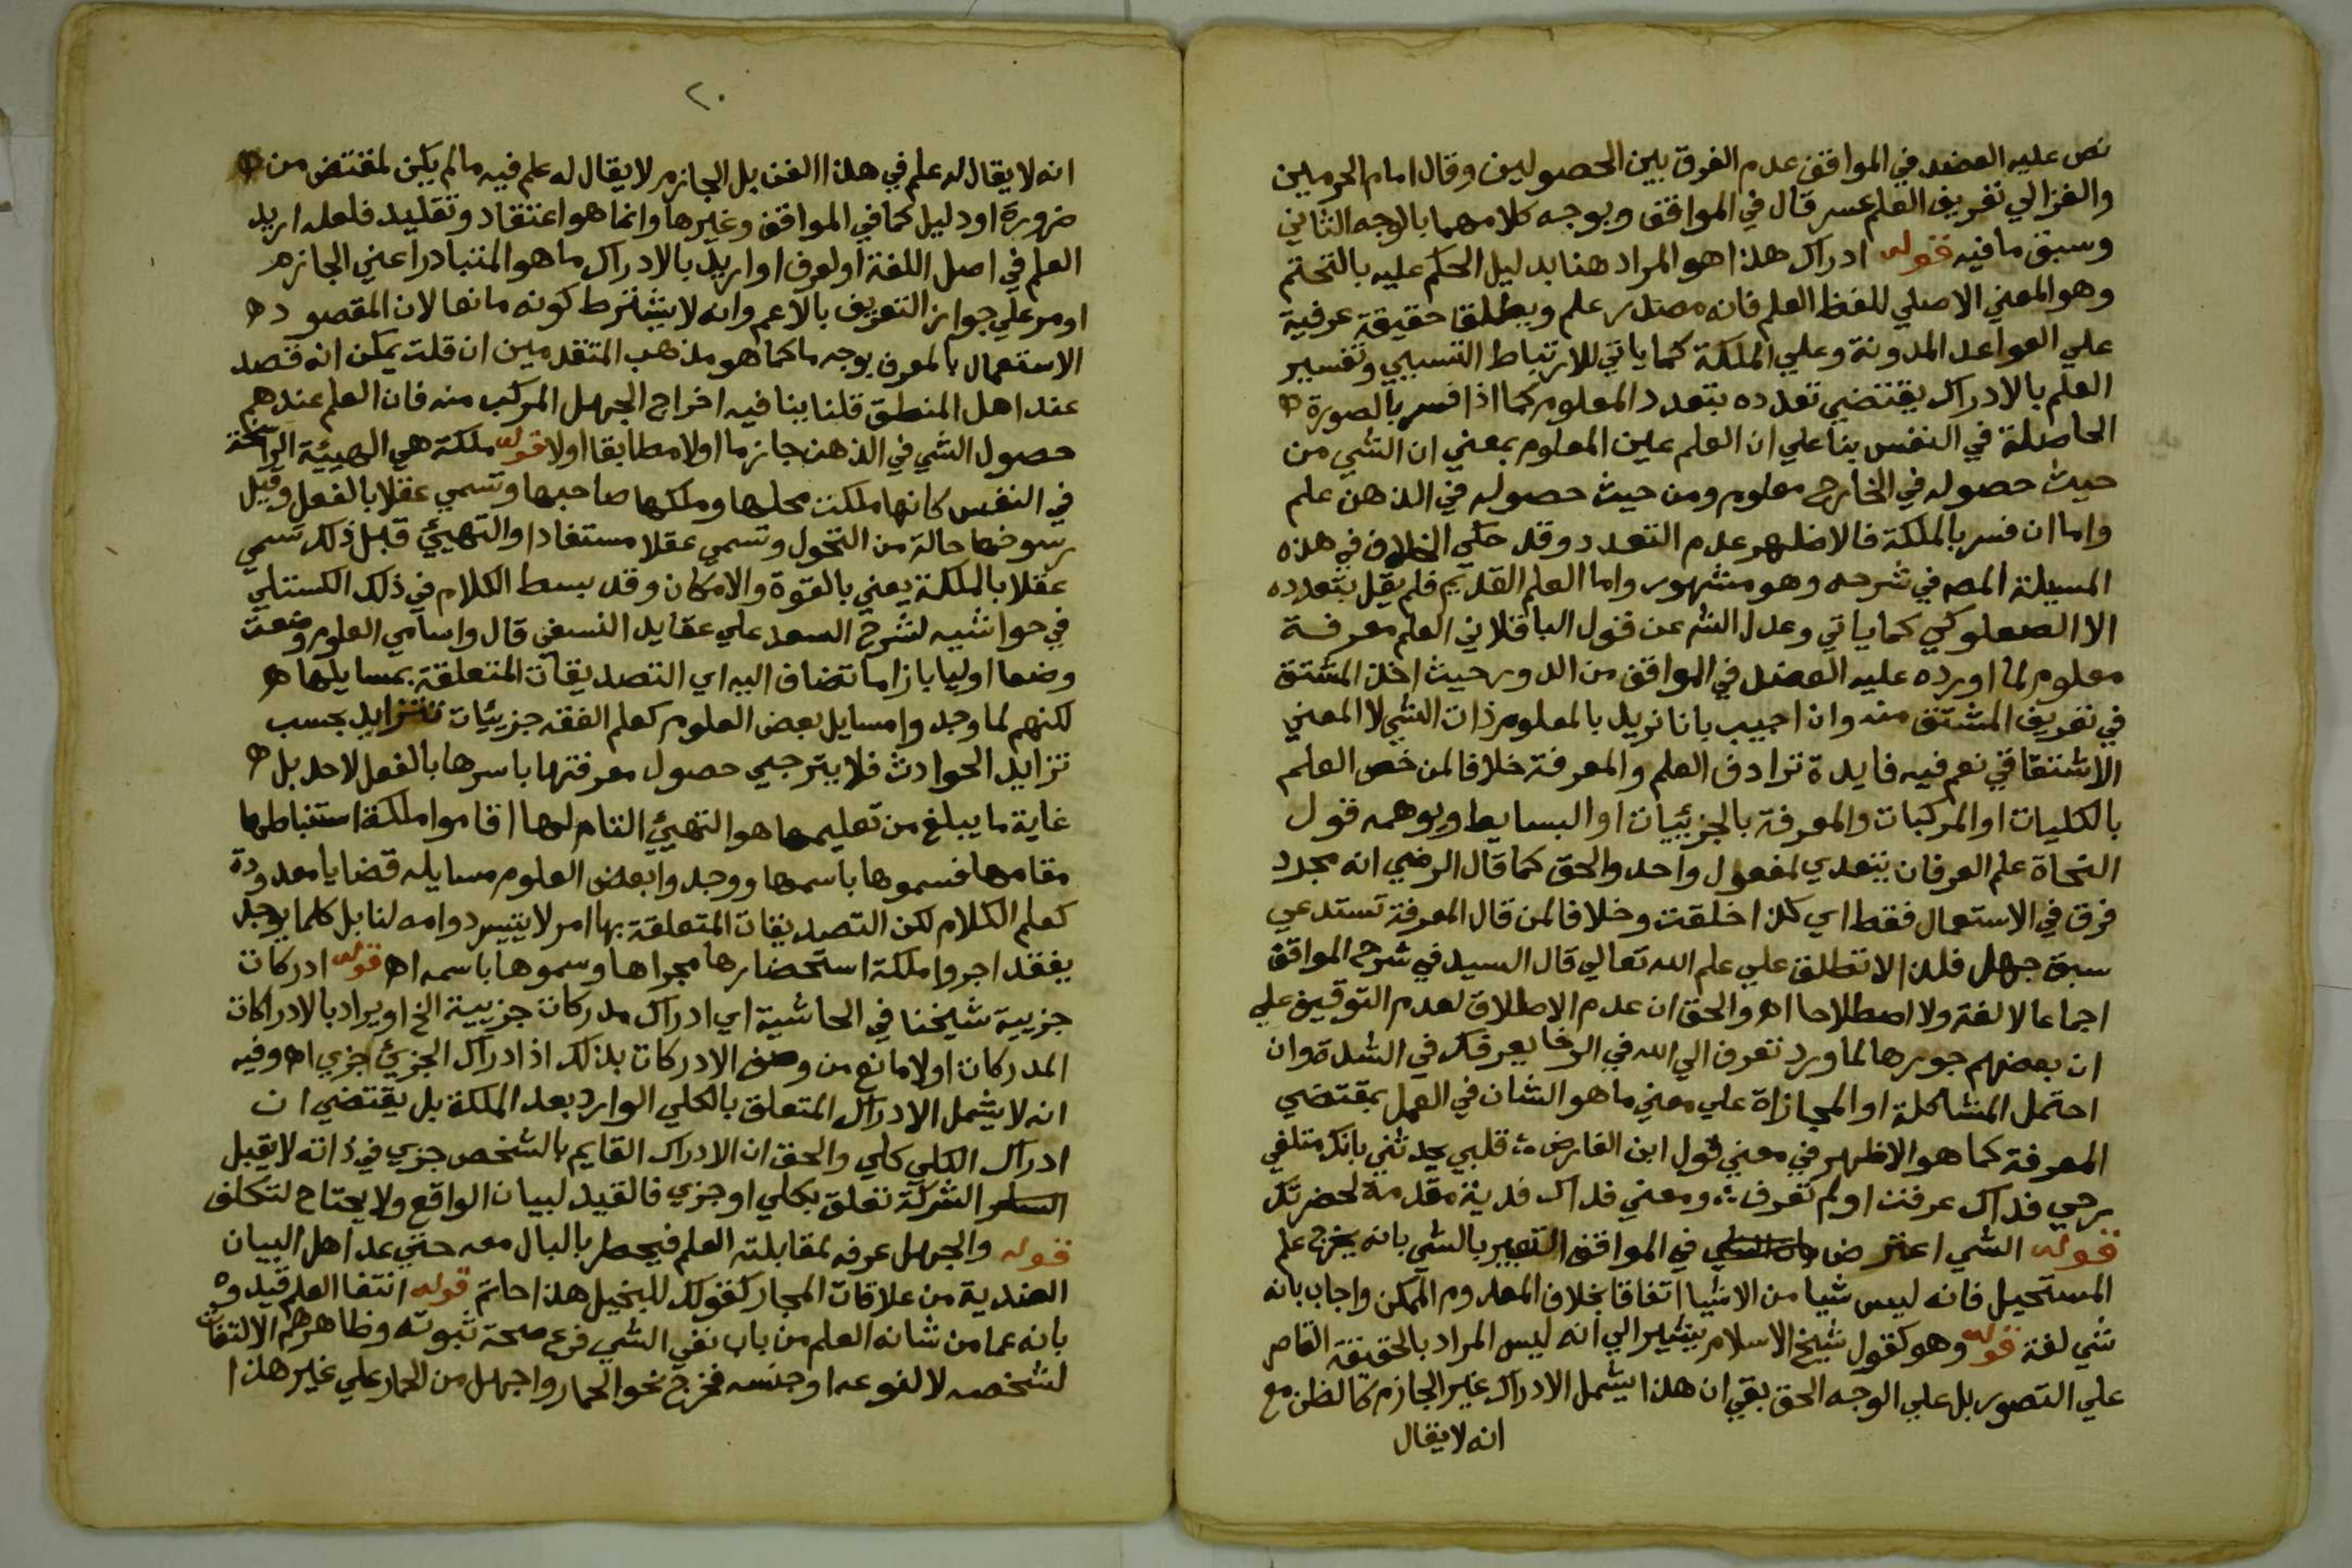 نص عليه العضد في المواقف عدم الفرق بين الحصولين وقال امام الحرمين
والغزالي تعريف العلم عسر قال في المواقف ويوجه كلامهما بالوجه الثاني
وسبق ما فيه قوله ادراك هذا هو المراد هنا بدليل الحكم عليه بالتحتم
وهو المعني الاصلي للفظ العلم فانه مصدر علم ويطلقا حقيقة عرفية
علي القواعد المدونة وعلي الملكة كما ياتي للارتباط التسببي وتفسير
العلم بالادراك يقتضي تعدده بتعدد المعلوم كما اذا فسر بالصورة
الحاصلة في النفس بنا علي ان العلم عين المعلوم بمعني ان الشي من
حيث حصوله في الخارج معلوم ومن حيث حصوله في الذهن علم
واما ان فسر بالملكة فالاظهر عدم التعدد وقد حكي الخلاف في هذه
المسيلة المص في شرحه وهو مشهور واما العلم القديم فلم يقل بتعدده
الا الصعلوكي كما ياتي وعدل الش عن قول الباقلاني العلم معرفة
معلوم لما اورده عليه العضد في المواقف من الدور حيث اخذ المشتق
في تعريف المشتق منه وان اجيب بانا نريد بالمعلوم ذات الشي لا المعني
الاشتقاقي نعم فيه فايدة ترادف العلم والمعرفة خلافا لمن خص العلم
بالكليات او المركبات والمعرفة بالجزئيات او البسايط ويوهمه قول
النحاة علم العرفان يتعدي لمفعول واحد والحق كما قال الرضي انه مجرد
فرق في الاستعمال فقط اي كذا خلقت وخلافا لمن قال المعرفة تستدعي
سبق جهل فلذا لا تطلق علي علم الله تعالي قال السيد في شرح المواقف
اجماعا لا لغة ولا اصطلاحا اه والحق ان عدم الاطلاق لعدم التوقيف علي
ان بعضهم جوزها لما ورد تعرف الي الله في الرخا يعرفك في الشدة وان
احتمل المشاكلة او المجازاة علي معني ما هو الشان في العمل بمقتضي
المعرفة كما هو الاظهر في معني قول ابن الفارض قلبي يحدثني بانك متلفي
روحي فداك عرفت اولم تعرف ومعني فداك فدية مقدمة لحضرتك
قوله الشي اعترض في المواقف التعبير بالشي بانه يخرج علم
المستحيل فانه ليس شيا من الاشيا اتفاقا بخلاف المعدوم الممكن واجاب بانه
شي لغة قوله وهو كقول شيخ الاسلام يشير الي انه ليس المراد بالحقيقة القاصر
علي التصور بل علي الوجه الحق بقي ان هذا يشمل الادراك غير الجازم كالظن مع
انه لا يقال
٢٠
انه لا يقال له علم في هذا الفن بل الجازم لا يقال له علم فيه ما لم يكن لمقتض من
ضرورة او دليل كما في المواقف وغيرها وانما هو اعتقاد وتقليد فلعله اريد
العلم في اصل اللغة او لعرف او اريد بالادراك ما هو المتبادر اعني الجازم
او مر علي جواز التعريف بالاعم وانه لا يشترط كونه مانعا لان المقصود
الاستعمال بالمعرف بوجه ما كما هو مذهب المتقدمين ان قلت يمكن انه قصد
عند اهل المنطق قلنا ينافيه اخراج الجهل المركب منه فان العلم عندهم
حصول الشي في الذهن جازما اولا مطابقا اولا قوله ملكة هي الهيئة الراسخة
في النفس كانها ملكت محلها وملكها صاحبها وتسمي عقلا بالفعل وقبل
رسوخها حالة من التحول وتسمي عقلا مستفادا والتهيئ قبل ذلك تسمي
عقلا بالملكة يعني بالقوة والامكان وقد بسط الكلام في ذلك الكستلي
في حواشيه لشرح السعد علي عقايد النسفي قال واسامي العلوم وضعت
وضعا اوليا بازا ما تضاف اليه اي التصديقات المتعلقة بمسايلها
لكنهم لما وجدوا مسايل بعض العلوم كعلم الفقه جزيئات تتزايد بحسب
تزايد الحوادث فلا يترجي حصول معرفتها باسرها بالفعل لاحد بل
غاية ما يبلغ من تعليمها هو التهيئ التام لها اقاموا ملكة استنباطها
مقامها فسموها باسمها ووجدوا بعض العلوم مسايله قضايا معدودة
كعلم الكلام لكن التصديقات المتعلقة بها امر لا يتيسر دوامه لنا بل كلما يوجد
يفقد اجروا ملكة استحضارها مجراها وسموها باسمه اه قوله ادركات
جزيية شيخنا في الحاشية اي ادراك مدركات جزيية الخ او يراد بالادراكات
المدركات اولا مانع من وصف الادركات بذلك اذ ادراك الجزئي جزي اه وفيه
انه لا يشمل الادراك المتعلق بالكلي الوارد بعد الملكة بل يقتضي ان
ادراك الكلي كلي والحق ان الادراك القايم بالشخص جزي في ذاته لا يقبل
الشركة تعلق بكلي او جزي فالقيد لبيان الواقع ولا يحتاج لتكلف
قوله والجهل عرفه لمقابلته العلم فيخطر بالبال معه حتي عد اهل البيان
الضدية من علاقات المجاز كقولك للبخيل هذا حاتم قوله انتفا العلم قيدوه
بانه عما من شانه العلم من باب نفي الشي فرع صحة ثبوته وظاهرهم الالتفات
لشخصه لا لنوعه او جنسه فخرج نحو الحمار واجهل من الحمار علي غير هذا